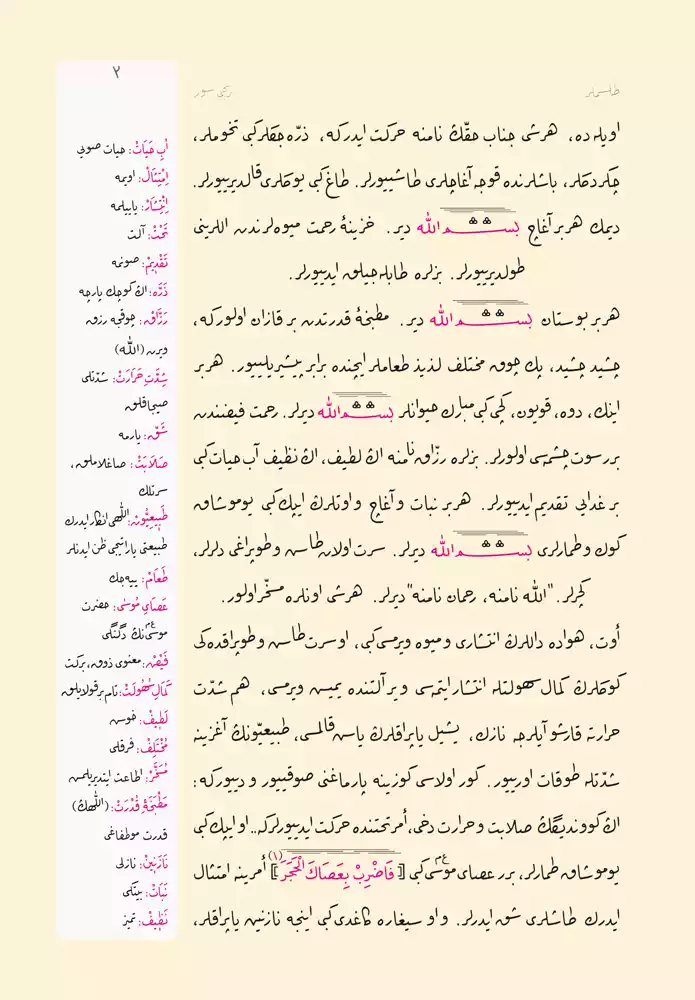 طلسملر
برنجی سوز
٢
اویله ده، هرشی جناب حقڭ نامنه حركت ایدرکه، ذرّه جكلر كبی تخوملر،
چكردكلر، باشلرنده قوجه آغاچلری طاشییورلر. طاغ كبی یوكلری قالدیرییورلر.
دیمك هر بر آغاج بســـم الله دیر. خزینۀ رحمت میوه لرندن اللرینی
طولدیرییورلر. بزلره طابله جیلق ایدییورلر.
هر بر بوستان بســـم الله دیر. مطبخۀ قدرتدن بر قازان اولور كه،
چشید چشید، پك چوق مختلف لذیذ طعاملر ایچنده برابر پیشیریلییور. هر بر
اینك، دوه، قویون، كچی كبی مبارك حیوانلر بســـم الله دیرلر. رحمت فیضندن
برر سوت چشمه سی اولورلر. بزلره رزّاق نامنه اڭ لطیف، اڭ نظیف آب حیات كبی
بر غدایی تقدیم ایدییورلر. هر بر نبات و آغاج و اوتلرڭ ایپك كبی یوموشاق
كوك و طمارلری بســـم الله دیرلر. سرت اولان طاش و طوپراغی دلرلر،
كچرلر. "الله نامنه، رحمان نامنه" دیرلر. هرشی اونلره مسخّر اولور.
أوت، هواده داللرڭ انتشاری و میوه ویرمه سی كبی، او سرت طاش و طوپراقده كی
كوكلرڭ كمال سهولتله انتشار ایتمه سی و یر آلتنده یمیش ویرمه سی، هم شدّت
حرارته قارشو آیلرجه نازك، یشیل یاپراقلرڭ یاش قالمه سی، طبیعیّونڭ آغزینه
شدّتله طوقات اورییور. كور اولاسی كوزینه پارماغنی صوقییور و دییور كه:
اڭ كووندیگڭ صلابت و حرارت دخی، أمر تحتنده حركت ایدییورلر كه.. او ایپك كبی
یوموشاق طمارلر، برر عصای موسی ع‌م كبی [فَاضْرِبْ بِعَصَاكَ الْحَجَرَ](١) أمرینه امتثال
ایدرك طاشلری شق ایدرلر. و او سیغاره كاغدی كبی اینجه نازنین یاپراقلر،
اٰبِ حَيَاتْ: حیات صویی
اِمْتِثَالْ: اویمه
اِنْتِشَارْ: یاییلمه
تَحْتْ: آلت
تَقْدِيمْ: صونمه
ذَرَّه: اڭ كوچك پارچه
رَزَّاقْ: چوقجه رزق
ویرن (الله)
شِدَّتِ حَرَارَتْ: شدّتلی
صیجاقلق
شَقْ: یارمه
صَلَابَتْ: صاغلاملق،
سرتلك
طَبِيعِيُّونْ: اللّٰهی انكار ایدرك
طبیعتی یاراتیجی ظن ایدنلر
طَعَامْ: ییه جك
عَصَایِ مُوسٰی: حضرت
موسی ع‌م نڭ دگنگی
فَيْضْ: معنوی ذوق، بركت
كَمَالِ سُهُولَتْ: تام بر قولایلق
لَطِيفْ: خوش
مُخْتَلِفْ: فرقلی
مُسَخَّرْ: اطاعت ایتدیریلمش
مَطْبَخَۀِ قُدْرَتْ: (اللّٰهڭ)
قدرت موطفاغی
نَازَنِينْ: نازلی
نَبَاتْ: بیتكی
نَظِيفْ: تمیز